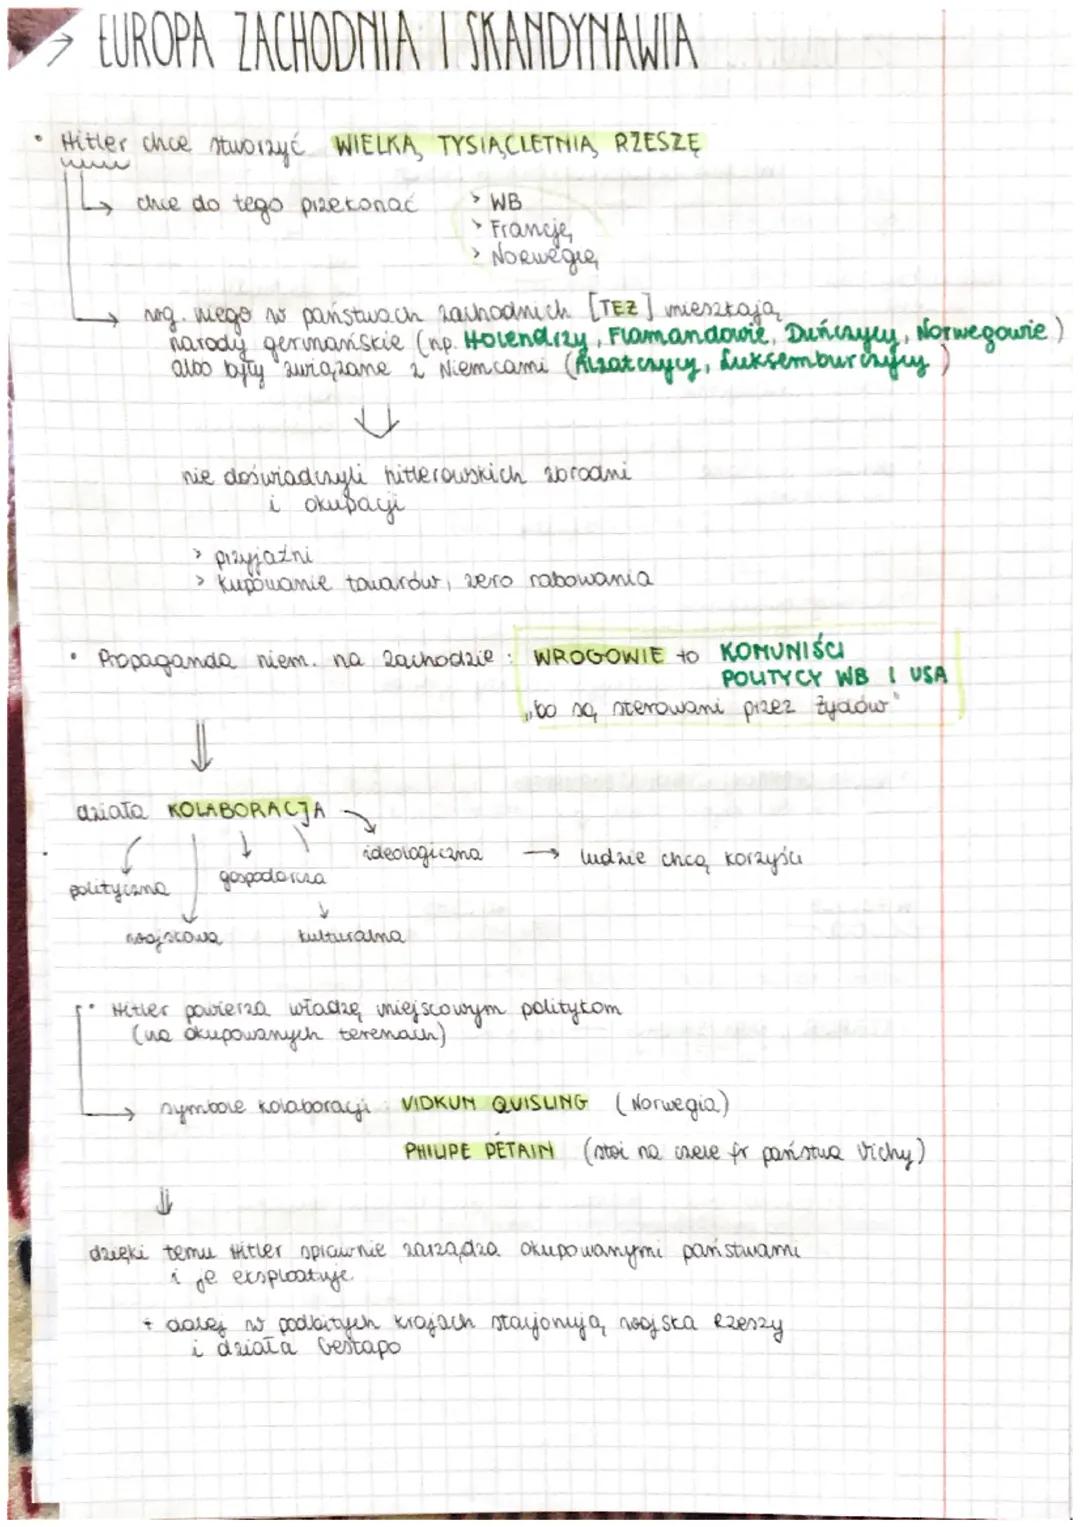 → EUROPA ZACHODNIA I SKANDYNAWIA
• Hitler chce stworzyć WIELKĄ TYSIĄCLETNIĄ RZESZĘ
↳ chce do tego przekonać > WB
> Francję
> Norwegię
→ wg. niego w państwach zachodnich [TEŻ] mieszkają
narody germańskie (np. Holendrzy, Flamandowie, Duńczycy, Norwegowie)
albo były związane z Niemcami (Alzatczycy, Luksemburczycy)
⇓
nie doświadczyli hitlerowskich zbrodni
i okupacji
> przyjaźni
> kupowanie towarów, zero rabowania
• Propaganda niem. na zachodzie: WROGOWIE to KOMUNIŚCI
POLITYCY WB I USA
„bo są sterowani przez Żydów"
⇓
działa KOLABORACJA
ideologiczna → ludzie chcą korzyści
polityczna gospodarcza
wojskowa kulturalna
• Hitler powierza władzę miejscowym politykom
(na okupowanych terenach)
→ symbole kolaboracji: VIDKUN QUISLING (Norwegia)
PHILIPE PÉTAIN (stoi na czele fr państwa Vichy)
⇓
dzięki temu Hitler sprawnie zarządza okupowanymi państwami
i je eksploatuje
+ dalej w podbitych krajach stacjonują wojska Rzeszy
i działa Gestapo